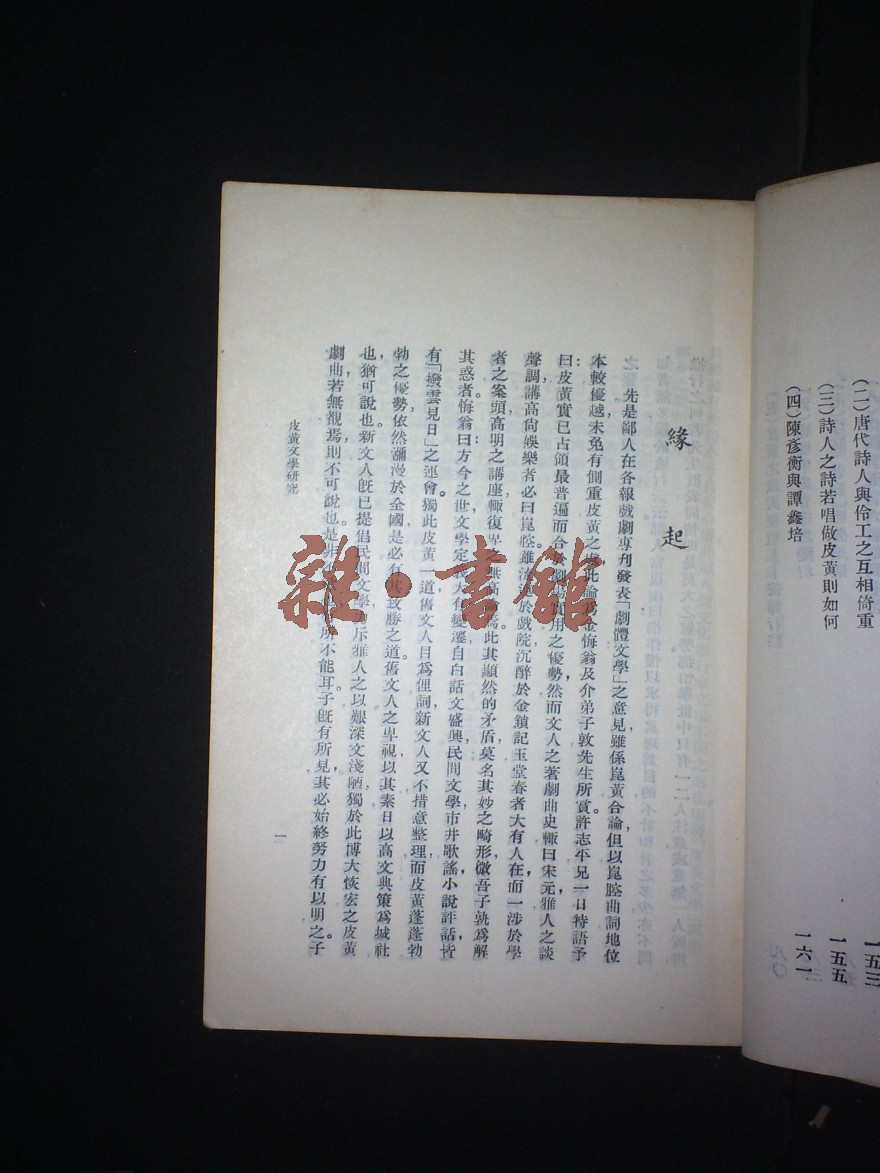 (二)唐代詩人與伶工之互相倚重
一五三
(三)詩人之詩若唱做皮黃則如何
一五五
(四)陳彥衡與譚鑫培
一六一
緣起
先是鄙人在各報戲劇專刊發表「劇體文學」之意見雖係崑黃合論,但以崑腔曲詞地位
本較優越未免有側重皮黃之此論金悔翁及介弟子敦先生所賞許志平兄一日特語予
曰皮黃實已占領最普遍而合於劇場實用之優勢然而文人之著劇曲史輙曰宋元雅人之談
聲調講高尚娛樂者必曰崑腔雖於戲院沉醉於金鎖記玉堂春者大有人在而一涉於學
者之案頭高明之講座輙復卑之無高論焉此其顯然的矛盾莫名其妙之畸形微吾子孰為解
其惑者悔翁曰:方今之世文學定義大有變遷自白話文盛興民間文學市井歌謠小說評話皆
有「撥雲見日」之運會獨此皮黃一道舊文人目為俚詞,新文人又不措意整理而皮黃蓬蓬勃
勃之優勢依然瀰漫於全國是必有其致勝之道舊文人之卑視以其素日以高文典策為城社
也,猶可說也新文人既已提倡民間文學斥雅人之以艱深文淺陋,獨於此博大恢宏之皮黃
劇曲若無覩焉,則不可說也是非所不能耳子既有所見其必始終努力有以明之子
皮黃文學研究
一
雜·書館